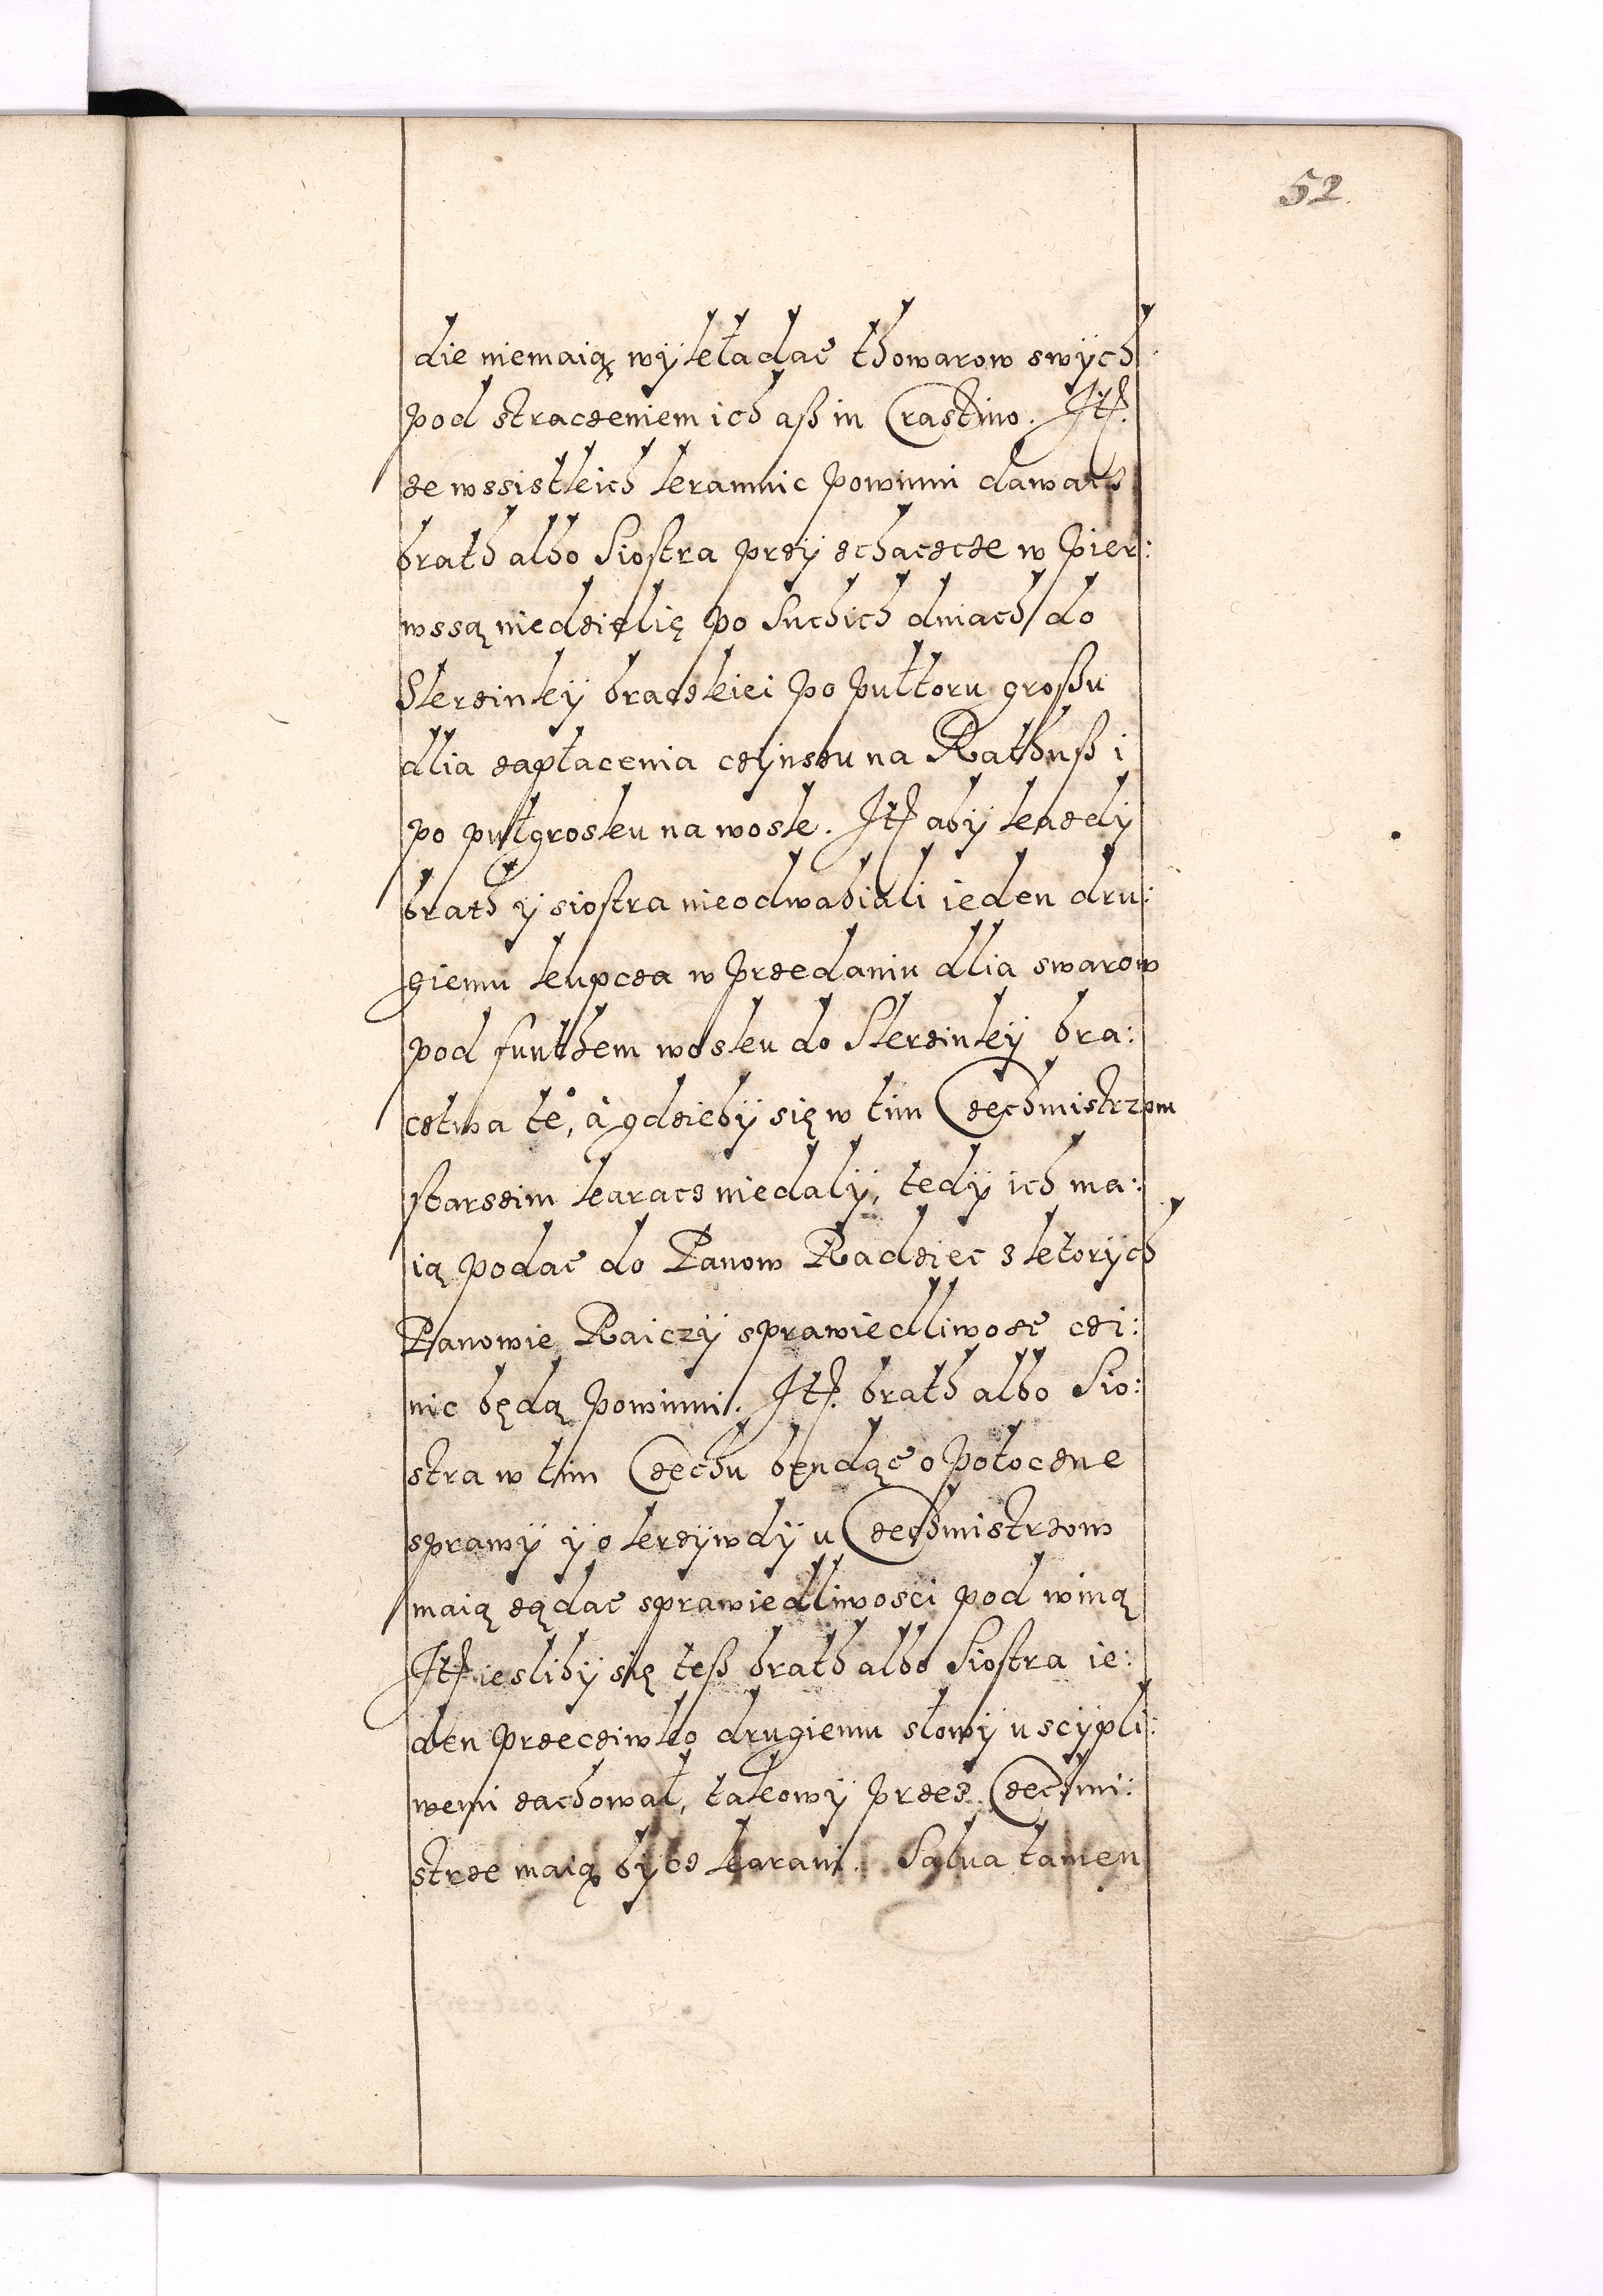 52.
die niemaią wÿkładać thowarow swÿch
pod straczeniem ich aß in Crastino. Jtē.
ze wssistkich kramnic powinni dawatz
brath albo Siostra przÿ schaczcze w pier:
wssą niedzielię po Suchich dniach do
Skrzinkÿ braczkiei po pułtoru großu
dlia zapłacenia czÿnszu na Rathuß i
po pułgrosku na wosk. Jtē abÿ kazdÿ
brath ÿ siostra nieodwabiali ieden dru:
giemu kupcza w przedaniu dlia swarow
pod funthem wosku do Skrzinkÿ bra:
cztwa te°, à gdziebÿ się w tim Czechmistrzom
starszim karacz niedalÿ, tedÿ ich ma:
ią podać do Panow Radziec z ktorÿch
Panowie Raiczÿ sprawiedliwosć czi:
nic będą powinni. Jtē. brath albo Sio:
stra w tim Czechu bendąc o potoczne
sprawÿ ÿ o krzÿwdÿ u Czechmistrzow
maią ządać sprawiedliwosci pod winą
Jtē ieslibÿ się teß brath albo Siostra ie:
den przecziwko drugiemu słowÿ usczÿpli:
wemi zachował, takowÿ przez Czechmi:
strze maią bÿcz karani. Salua tamen